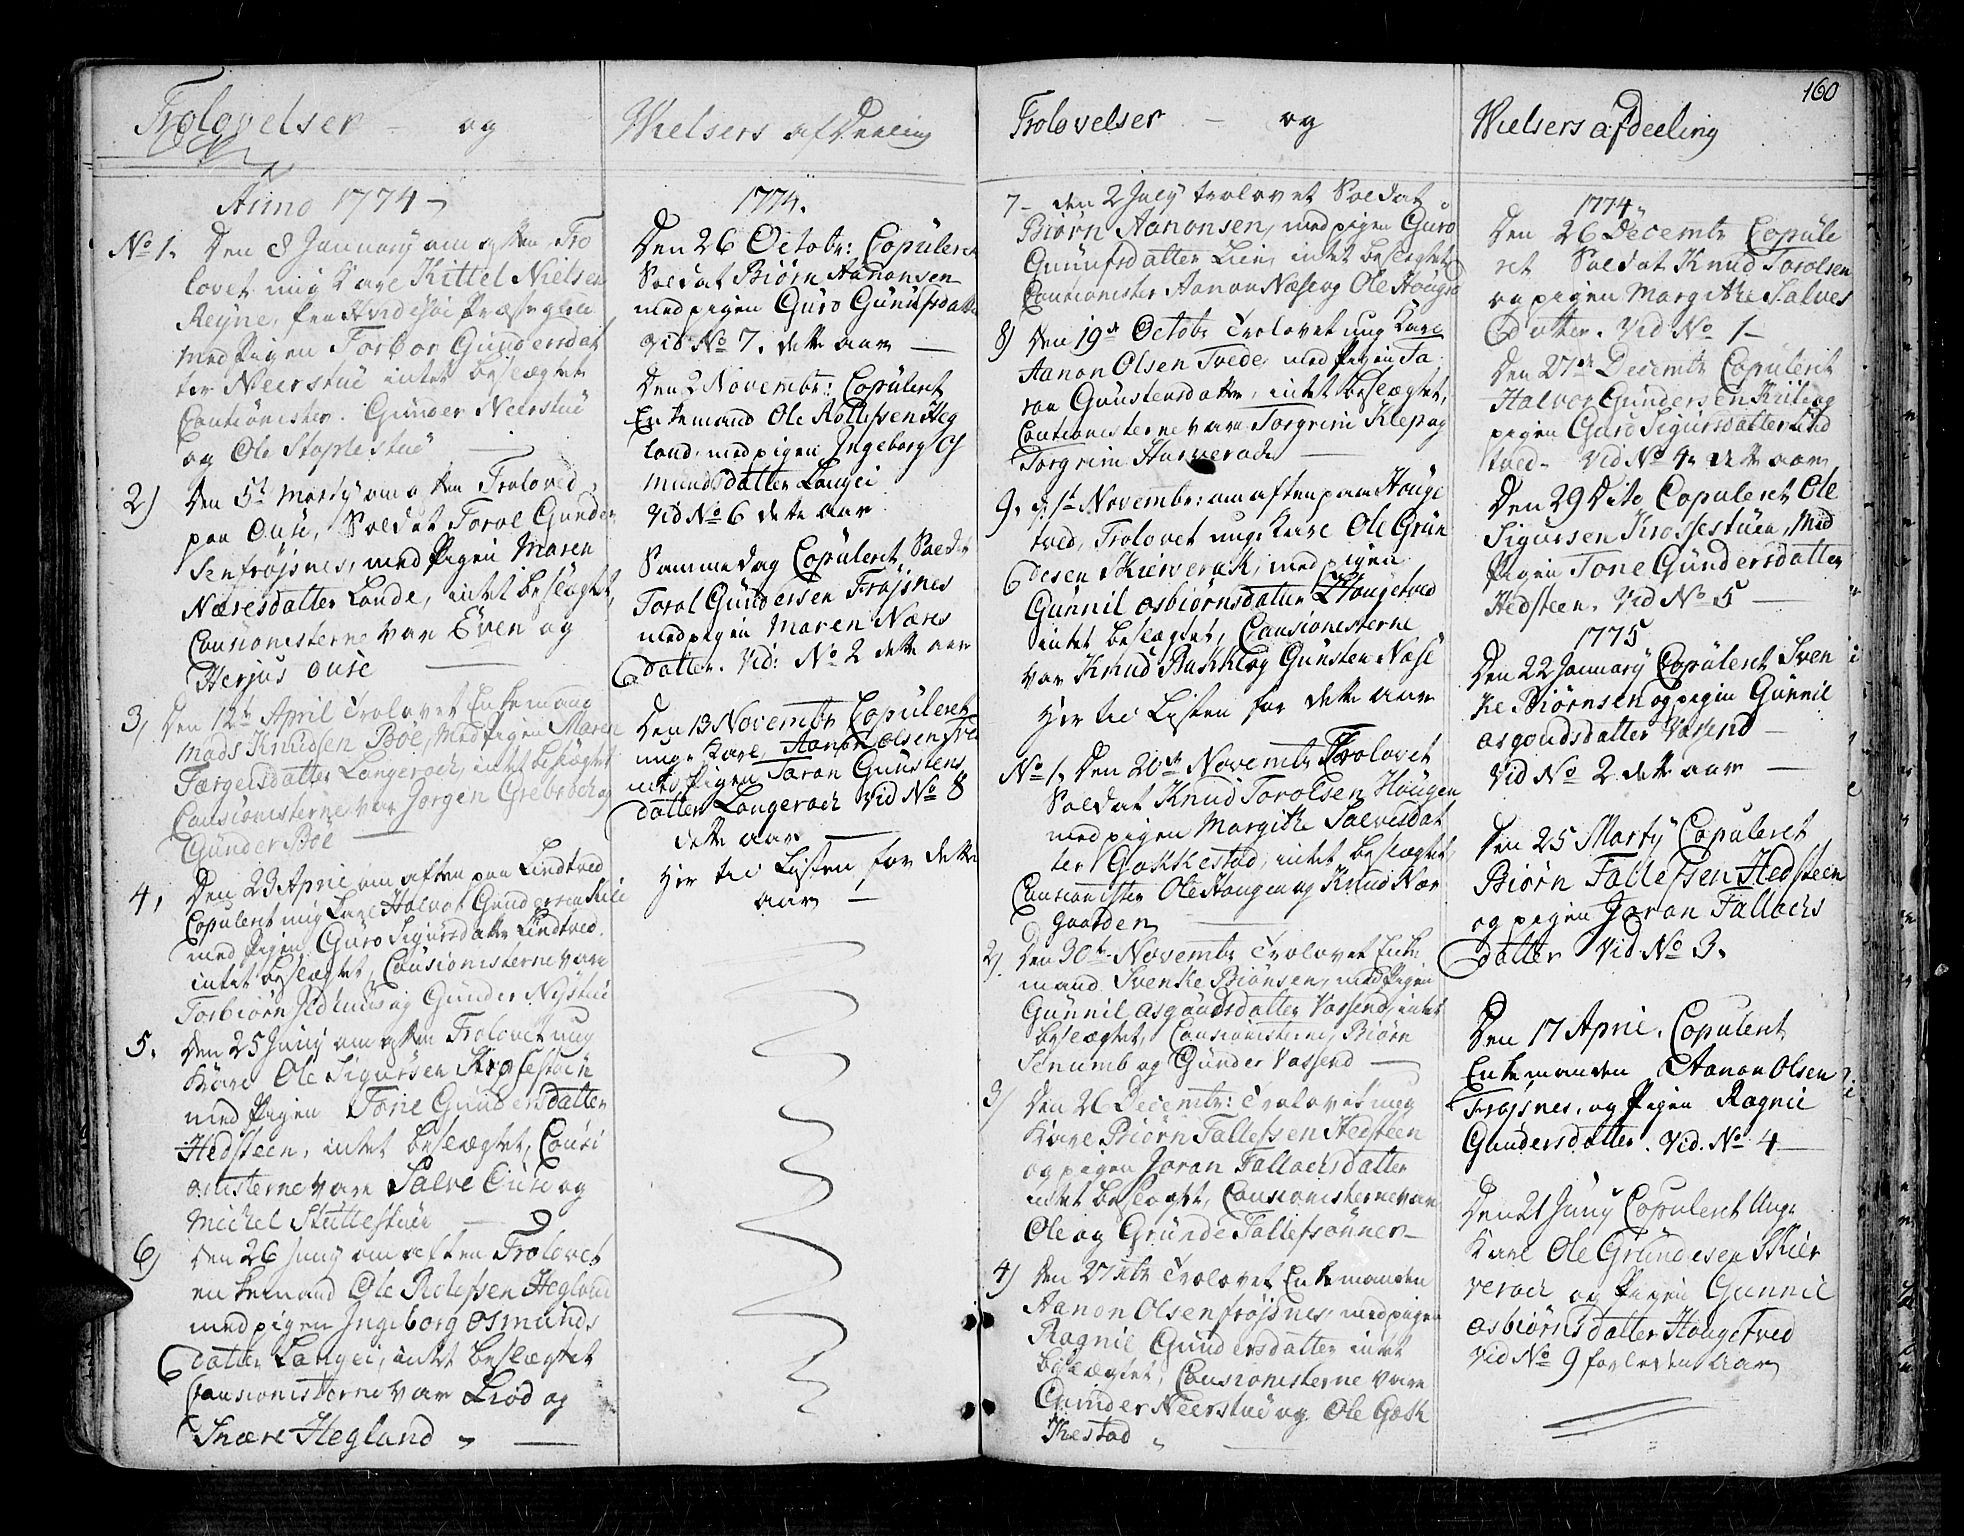 160
Trolovelser - og
Anno 1774
No 1. Den 8 January om aften Tro
lovet ung Karl Kittel Nielsen
Reyne, fra Hvidesøe Præstegield
med Pigen Torbor Gundersdat
ter Neerstue intet beslægtet
Cautionister Gunder Neerstue
og Ole Staplestue
2) Den 5t Marty om aften Trolovid
paa Ouse, Soldat Torol Gunder
sen frøjsnes, med Pigen Maren
Næresdatter Lande, intet beslægtet,
Causionisterne var Even og
Herjus ouse
3, Den 12te April Trolovet Enkemand
Mads Knudsen Böe, med Pigen Maren
Tærgersdatter Langerack, intet beslægtet
Causionisterne var Jørgen Grebrock og
Gunder Boe
4, Den 23 April om aften paa Lindtved
Copuleret ung Karl Halvor Gundersen Kili
med Pigen Guro Sigursdatter Lindtved
intet beslægtet, Causionisterne vare
Torbiørn og Gunder Nystue
5. Den 25 Juny om aften Trolovet ung
Karl Ole Sigursen Krossestuen
med Pigen Tone Gundersdatter
Hedsteen, intet beslægtet, Causi
onisterne vare Salve Ouse og
Michel Stuttestuen
6) Den 26 Juny om aften Trolovet
enkemand Ole Rolefsen Hegland
med pigen Ingeborg Osmunds
datter Langei, intet beslægtet
Causionisterne var Liød og
Snære Hegland
Wielsers afDeeling
1774.
Den 26 Octobr: Copuleret
Soldat Biørn Aanonsen
med pigen Guro Gunufsdatter
vid No 7. dette aar
Den 2 Novembr: Copuleret
Enkemand Ole Rollefsen Heg
land, med pigen Ingeborg Os
mundsdatter Langei
Vid No 6 dette aar
Sammedag Copuleret Soldt
Torol Gundersen Frøjsnes
med pigen Maren Næres
datter. Vid: No 2 dette aar
Den 13 Novembr Copuleret
ung Karl Aanon olsen Tve
med Pigen Taran Gunstens
datter Langerack Vid No 8
dette aar
Her til Listen for dette
aar
Trolovelser - og
7- den 2 July trolovet Soldat
Biørn Aanonsen, med pigen Guro
Gunufsdatter Lien intet beslægtet
Causionister Aanon Næse og Ole Hougen
8) Den 19de Octobr Trolovet ung Karl
Aanon Olsen Tvede med Pigen Ta
ran Gunstensdatter, intet beslægtet,
Causionisterne vare Torgrim Klep og
Torgrim Harverack
9. d. 1t Novembr: om aften paa Houge
tved, Trolovet ung Karl Ole Grun
desen Skierverak, med pigen
Gunnil asbiørnsdatter Hougetved
intet beslægtet, Causionisterne
var Knud Bakke og Gunsten Næse
Her til Listen for dette aar
No 1. Den 20de Novembr Trolovet
Soldat Knud Torolsen Hougen
med pigen Margithe Salvesdat
ter Gakkestad, intet beslægtet,
Causionister Ole Hougen og Knud Nor
gaarden
2) Den 30te Novembr Trolovet Enke
mand Svenke Biønsen, med Pigen
Gunnil asgoudsdatter Vassend, intet
beslægtet, Causionisterne, Biørn
Senumb og Gunder Vassend
3) Den 26 Decembr: Trolovet ung
Karl Biørn Tallefsen Hedsteen
og pigen Joran Tallachsdatter
intet beslægtet, Causionisterne var
Ole og Grunde Tallefsønner
4) Den 27 Xtbr Trolovet Enkemanden
Aanon Olsen frøjsnes med pigen
Ragnil Gundersdatter intet
beslægtet, Causionisterne vare
Gunder Neerstue og Ole Gak
kestad
Wielsers afdeeling
1774.
Den 26 Decembr Copule
ret Soldat Knud Torolsen
og pigen Margithe Salves
datter. Vid No 1
Den 27de Decembr Copuleret
Halvor Gundersen Kili og
pigen Guro Sigursdatter Lind
tved. Vid No 4. dette aar
Den 29 Dito Copuleret Ole
Sigursen Krossestuen, Med
Pigen Tone Gundersdatter
Hedsteen. Vid No 5
1775
Den 22 January Copuleret Sven
ke Biørnsen og pigen Gunnil
asgoudsdatter Vasend
Vid No 2 dette aar
Den 25 Marty Copuleret
Biørn Tallefsen Hedsteen
og pigen Joran Tallachs
datter Vid No 3.
Den 17 April. Copuleret
Enkemanden Aanon Olsen
Frøjsnes, og Pigen Ragnil
Gundersdatter. Vid. No 4
Den 21 Juny Copuleret Ung.
Karl Ole Grundesen Skier
verack og Pigen Gunnil
asbiørnsdatter Hougetved
Vid No 9 forleden Aar